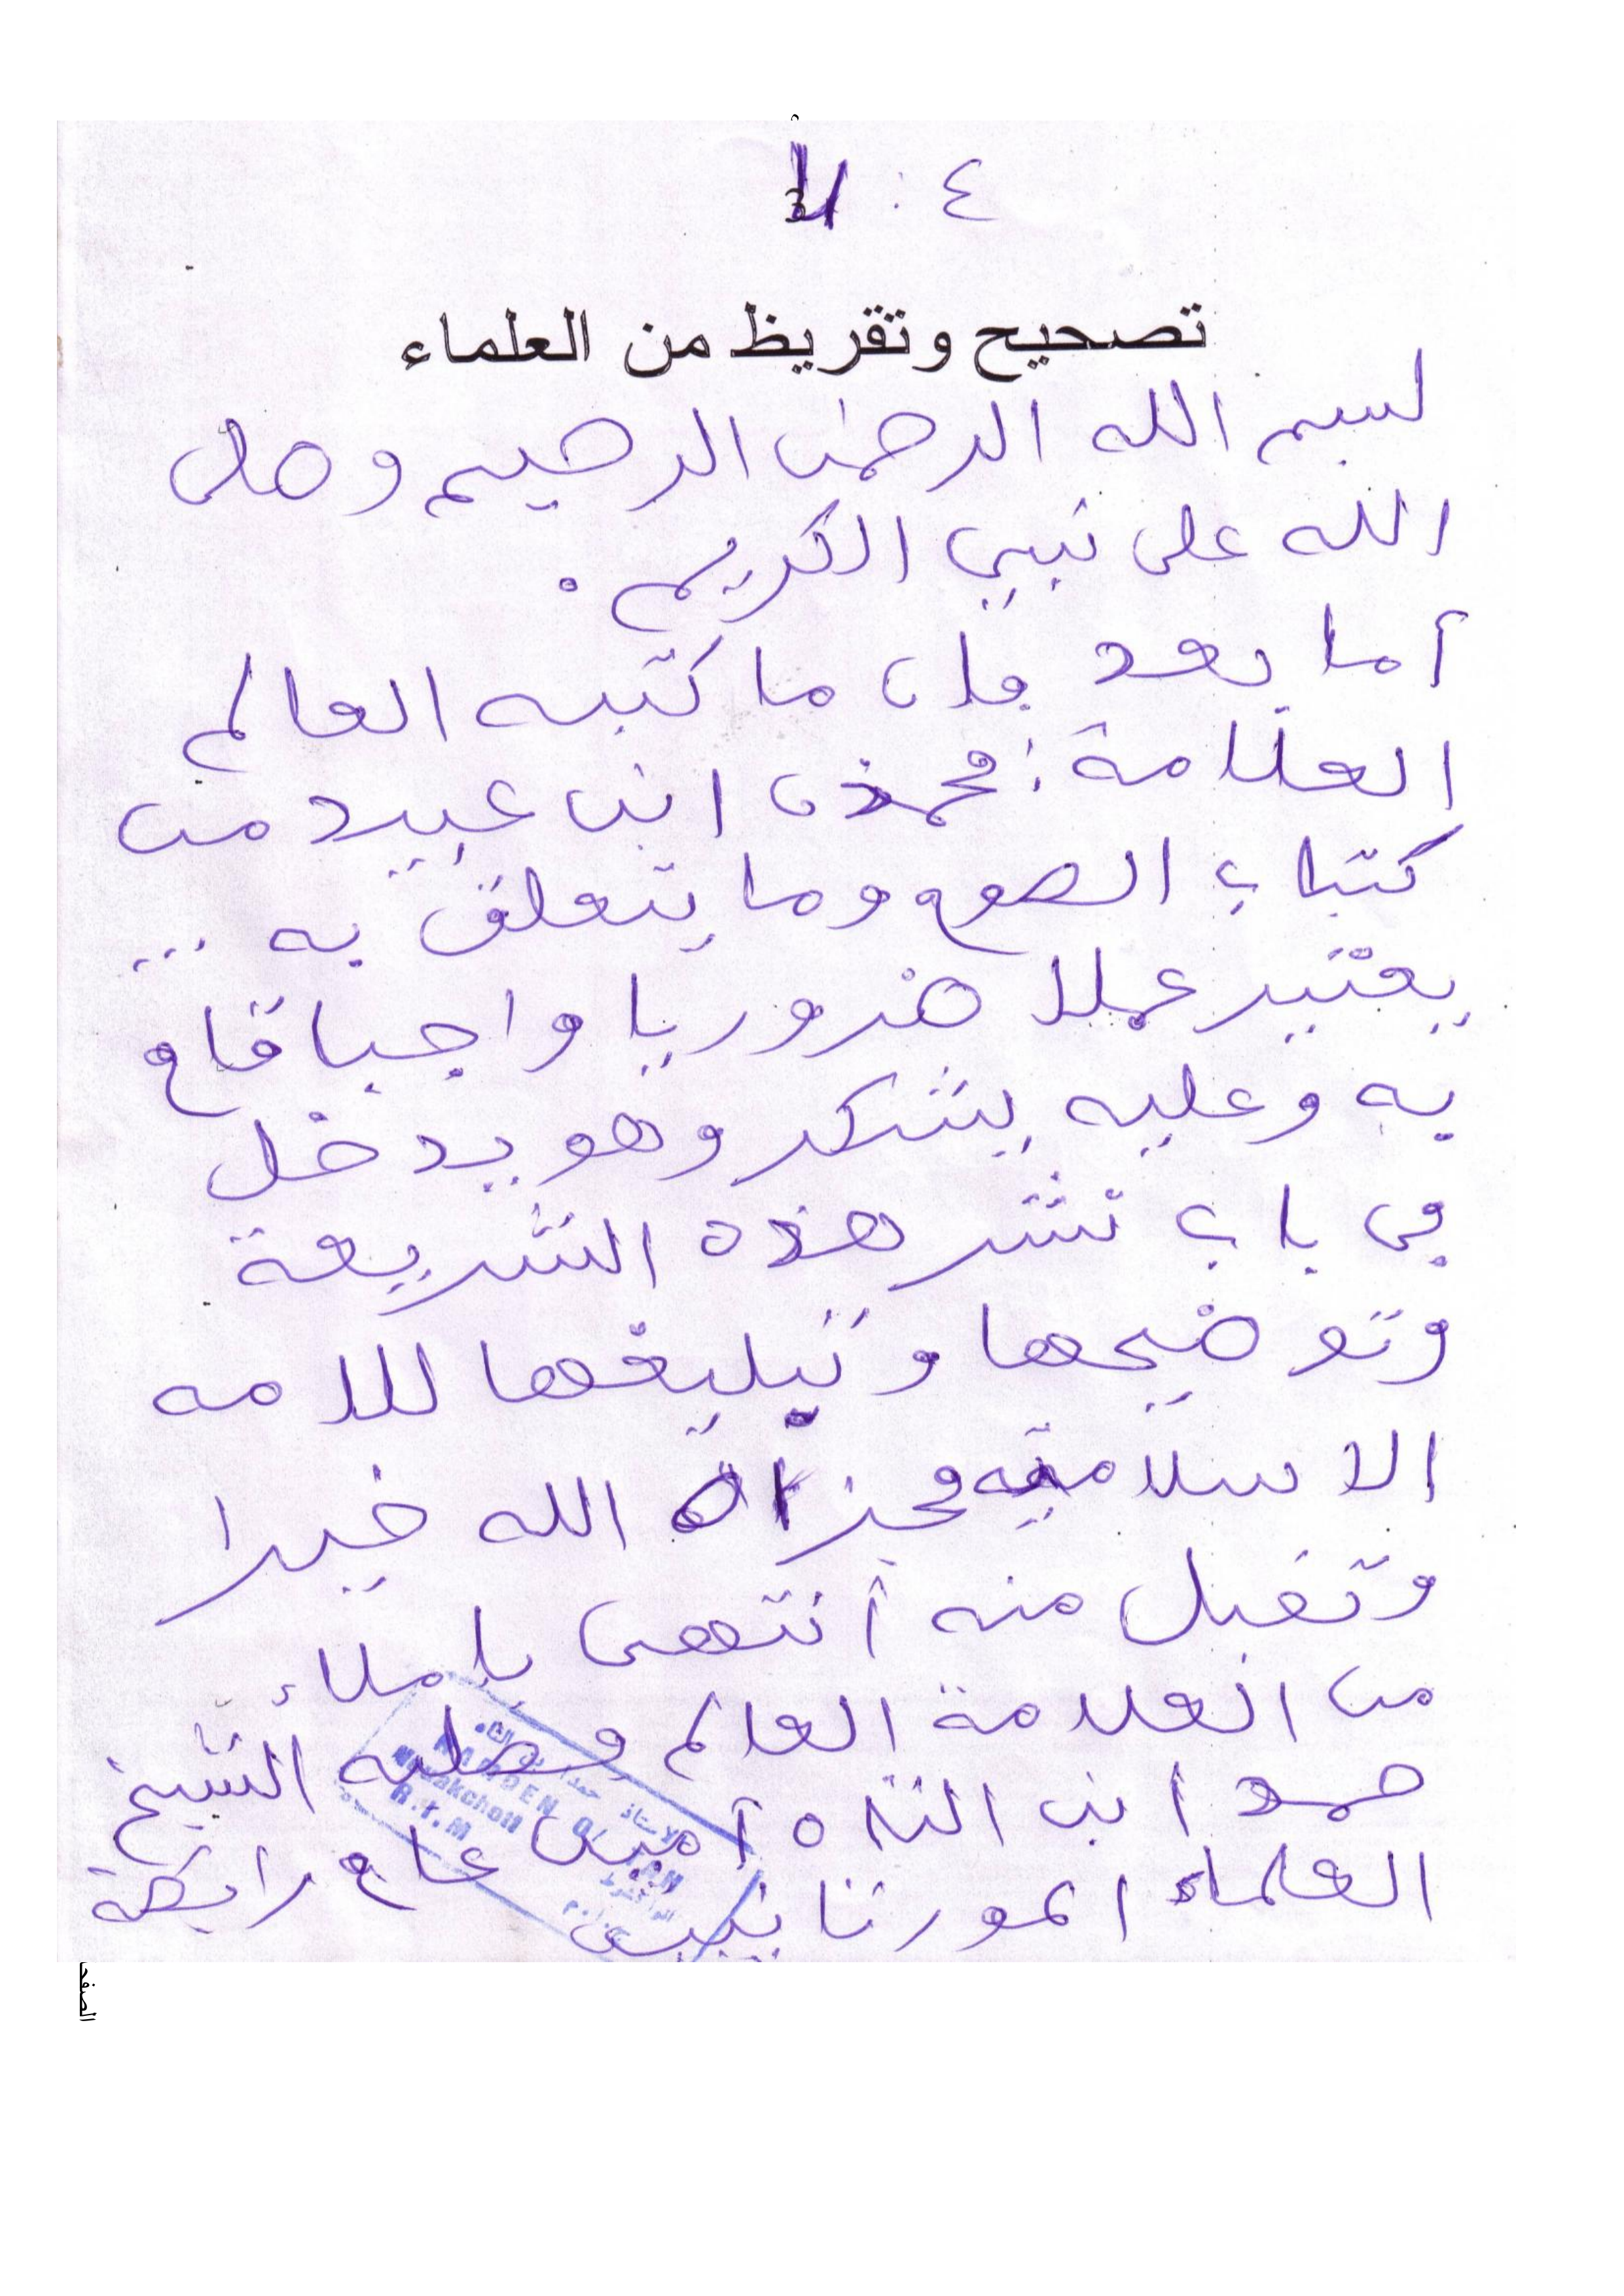 ٤ :
تصحيح وتقريظ من العلماء
بسم الله الرحمن الرحيم وصلى
الله على نبيي الكريم .
أما بعد فإن ما كتبه العالم
العلامة : محمذن ابن عبيد من
كتاب الصوم وما يتعلق به ...
يعتبر عملا ضروريا واجبا قام
به وعليه يشكر وهو يدخل
في باب نشر هذه الشريعة
وتوضيحها وتبليغها للامه
الاسلاميه فجزاه الله خيرا
وتقبل منه أنتهى بإملاء
من العلامة العالم الشيخ
حمدا ابن التاه أمين عام رابطة
العلماء الموريتانيين
HAMDEN O/ TAH
Nouakchott
R.I.M